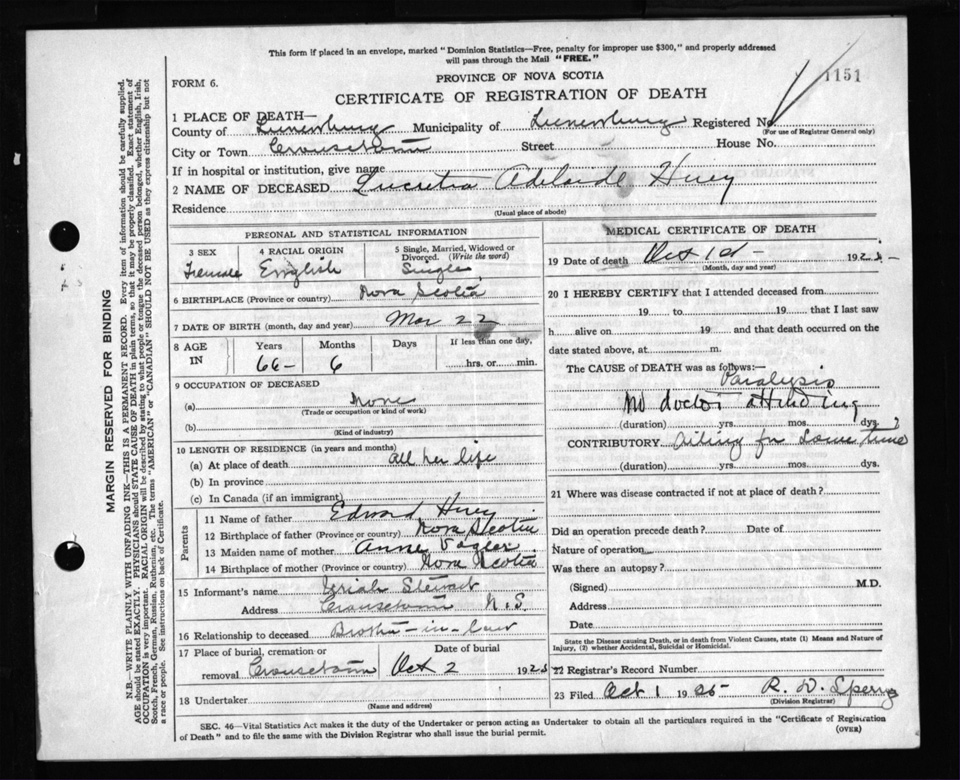 This form if placed in an envelope, marked "Dominion Statistics—Free, penalty for improper use $300," and properly addressed
will pass through the Mail "FREE."
1151
FORM 6.
PROVINCE OF NOVA SCOTIA
CERTIFICATE OF REGISTRATION OF DEATH
1 PLACE OF DEATH—
County of Lunenburg Municipality of Lunenburg Registered No.
(For use of Registrar General only)
City or Town Crousetown Street House No.
If in hospital or institution, give name
2 NAME OF DECEASED Lucretia Adelaide Huey
Residence
(Usual place of abode)
PERSONAL AND STATISTICAL INFORMATION
3 SEX 4 RACIAL ORIGIN 5 Single, Married, Widowed or Divorced. (Write the word)
Female English Single
6 BIRTHPLACE (Province or country) Nova Scotia
7 DATE OF BIRTH (month, day and year) Mar 22
8 AGE IN Years Months Days If less than one day,
66 6 hrs. or min.
9 OCCUPATION OF DECEASED
(a) None
(Trade or occupation or kind of work)
(b)
(Kind of industry)
10 LENGTH OF RESIDENCE (in years and months)
(a) At place of death all her life
(b) In province
(c) In Canada (if an immigrant)
Parents
11 Name of father Edward Huey
12 Birthplace of father (Province or country) Nova Scotia
13 Maiden name of mother Anne
14 Birthplace of mother (Province or country) Nova Scotia
15 Informant's name Stewart
Address Crousetown N.S.
16 Relationship to deceased Brother-in-law
17 Place of burial, cremation or removal Date of burial
Crousetown Oct 2 1925
18 Undertaker
(Name and address)
MEDICAL CERTIFICATE OF DEATH
19 Date of death Oct 192
(Month, day and year)
20 I HEREBY CERTIFY that I attended deceased from
19 to 19 that I last saw
h alive on 19 and that death occurred on the
date stated above, at m.
The CAUSE of DEATH was as follows:—
Paralysis
no doctor attending
(duration) yrs. mos. dys.
CONTRIBUTORY ailing for some time
(duration) yrs. mos. dys.
21 Where was disease contracted if not at place of death?
Did an operation precede death? Date of
Nature of operation
Was there an autopsy?
(Signed) M.D.
Address
Date
State the Disease causing Death, or in death from Violent Causes, state (1) Means and Nature of
Injury, (2) whether Accidental, Suicidal or Homicidal.
22 Registrar's Record Number
23 Filed Oct 1 1925 R. W. Sperry
(Division Registrar)
SEC. 46—Vital Statistics Act makes it the duty of the Undertaker or person acting as Undertaker to obtain all the particulars required in the "Certificate of Registration
of Death" and to file the same with the Division Registrar who shall issue the burial permit.
(OVER)
MARGIN RESERVED FOR BINDING
N.B.—WRITE PLAINLY WITH UNFADING INK—THIS IS A PERMANENT RECORD. Every item of information should be carefully supplied.
AGE should be stated EXACTLY. PHYSICIANS should STATE CAUSE OF DEATH in plain terms, so that it may be properly classified. Exact statement of
OCCUPATION is very important. RACIAL ORIGIN will be described by stating to what people or tongue the deceased person belonged, whether English, Irish,
Scotch, French, German, Russian, Ruthenian, etc. The terms "AMERICAN" or "CANADIAN" SHOULD NOT BE USED as they express citizenship but not
a race or people. See instructions on back of Certificate.